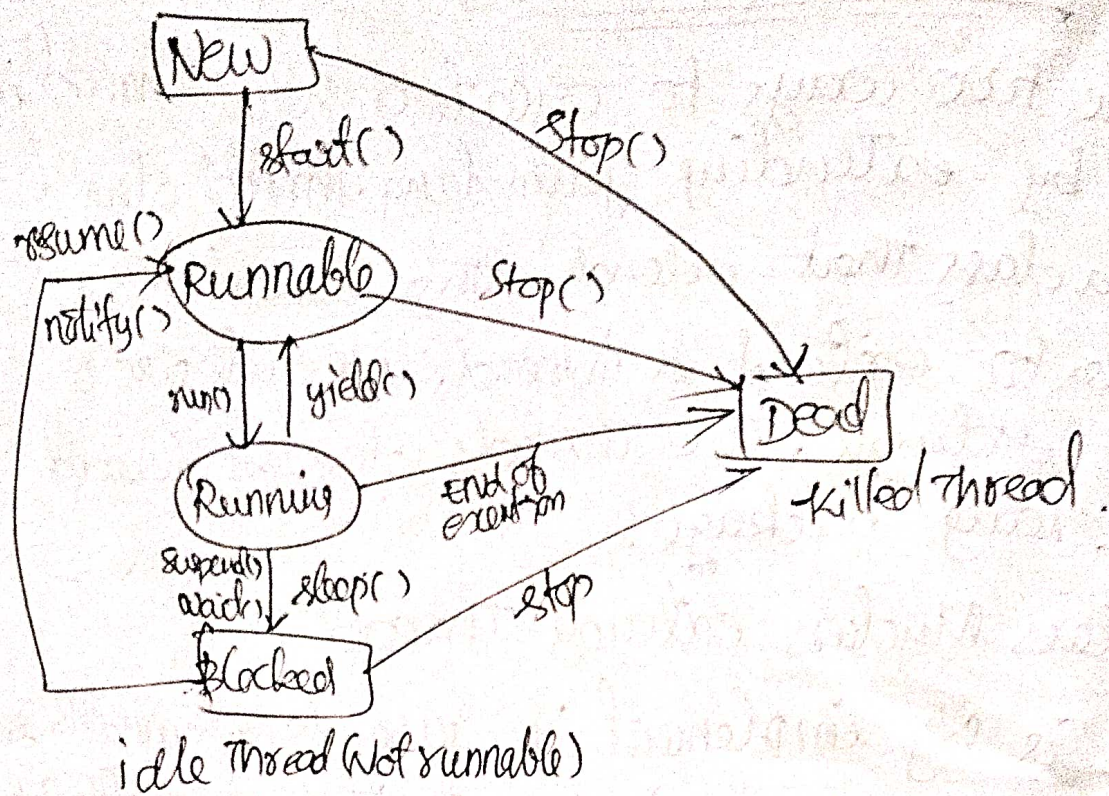 New
start()
Stop()
resume()
Runnable
Stop()
notify()
run()
yield()
Dead
Running
End of
execution
Killed Thread.
suspend()
wait()
sleep()
stop
Blocked
idle Thread (Not runnable)